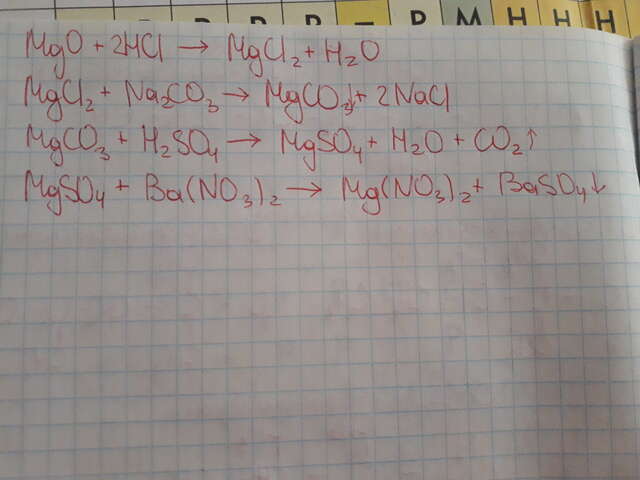 P P P – P M H H H
MgO + 2HCl → MgCl₂ + H₂O
MgCl₂ + Na₂CO₃ → MgCO₃↓ + 2NaCl
MgCO₃ + H₂SO₄ → MgSO₄ + H₂O + CO₂↑
MgSO₄ + Ba(NO₃)₂ → Mg(NO₃)₂ + BaSO₄↓